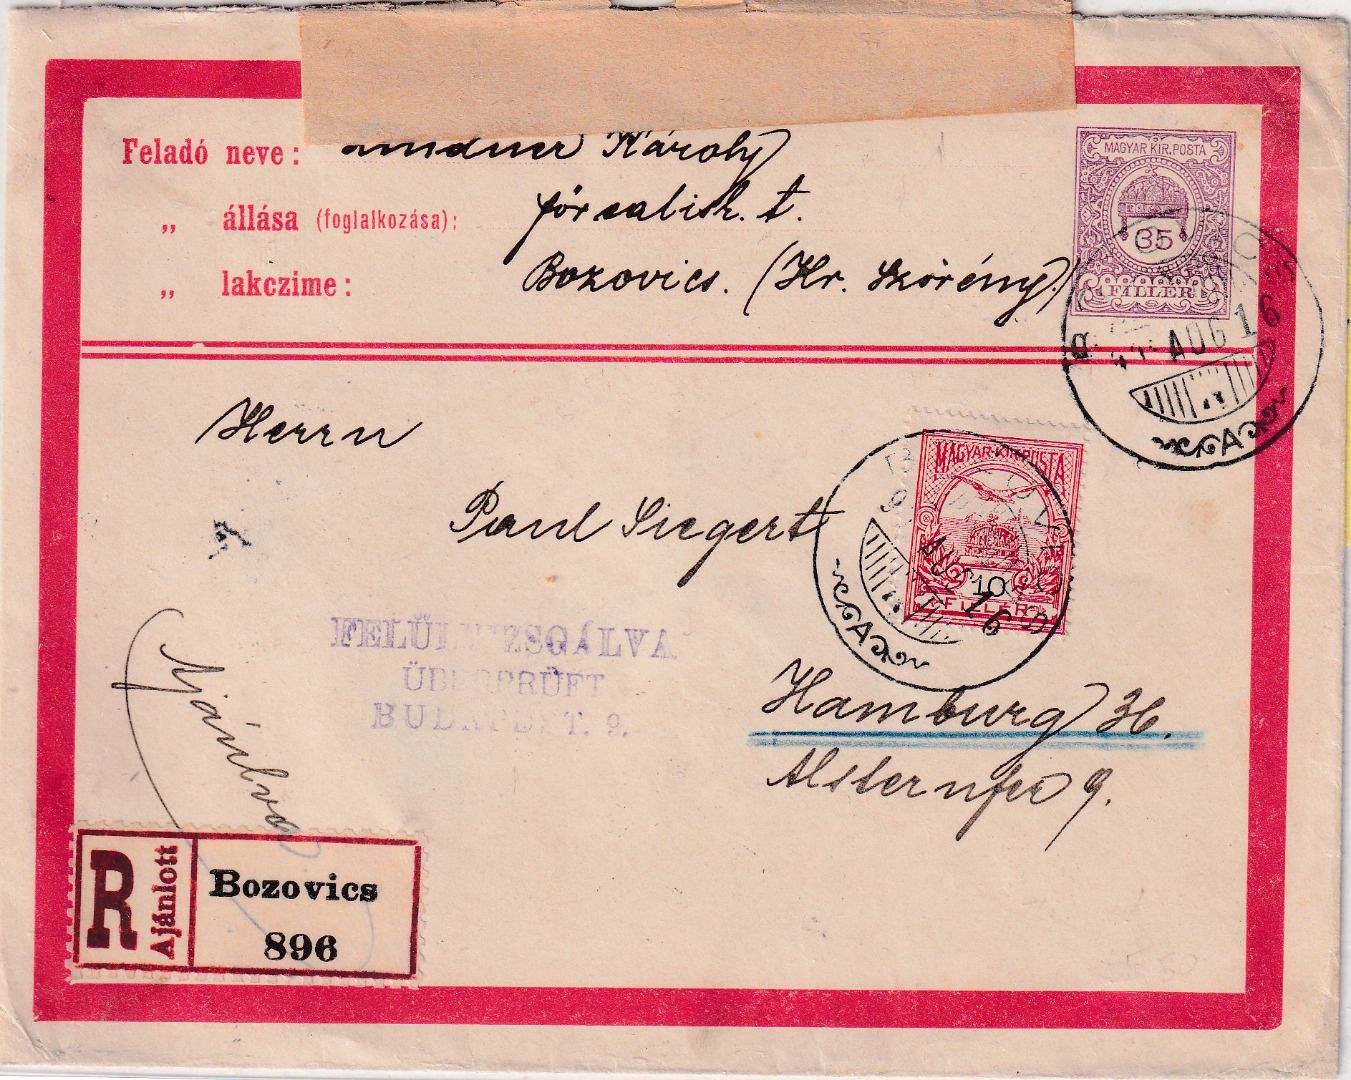 Feladó neve: Károly
„ állása (foglalkozása): főrealisk. t.
„ lakczime: Bozovics. (Kr. Szörény)
MAGYAR KIR. POSTA
35
FILLÉR
AUG 16
A
Herrn
Paul Siegert
MAGYAR KIR. POSTA
10
FILLÉR
BOZOVICS
AUG 16
A
FELÜLVIZSGÁLVA
ÜBERPRÜFT
BUDAPEST. 9.
Hamburg 36.
Alsterufer 9.
Ajánlva
R Ajánlott
Bozovics
896